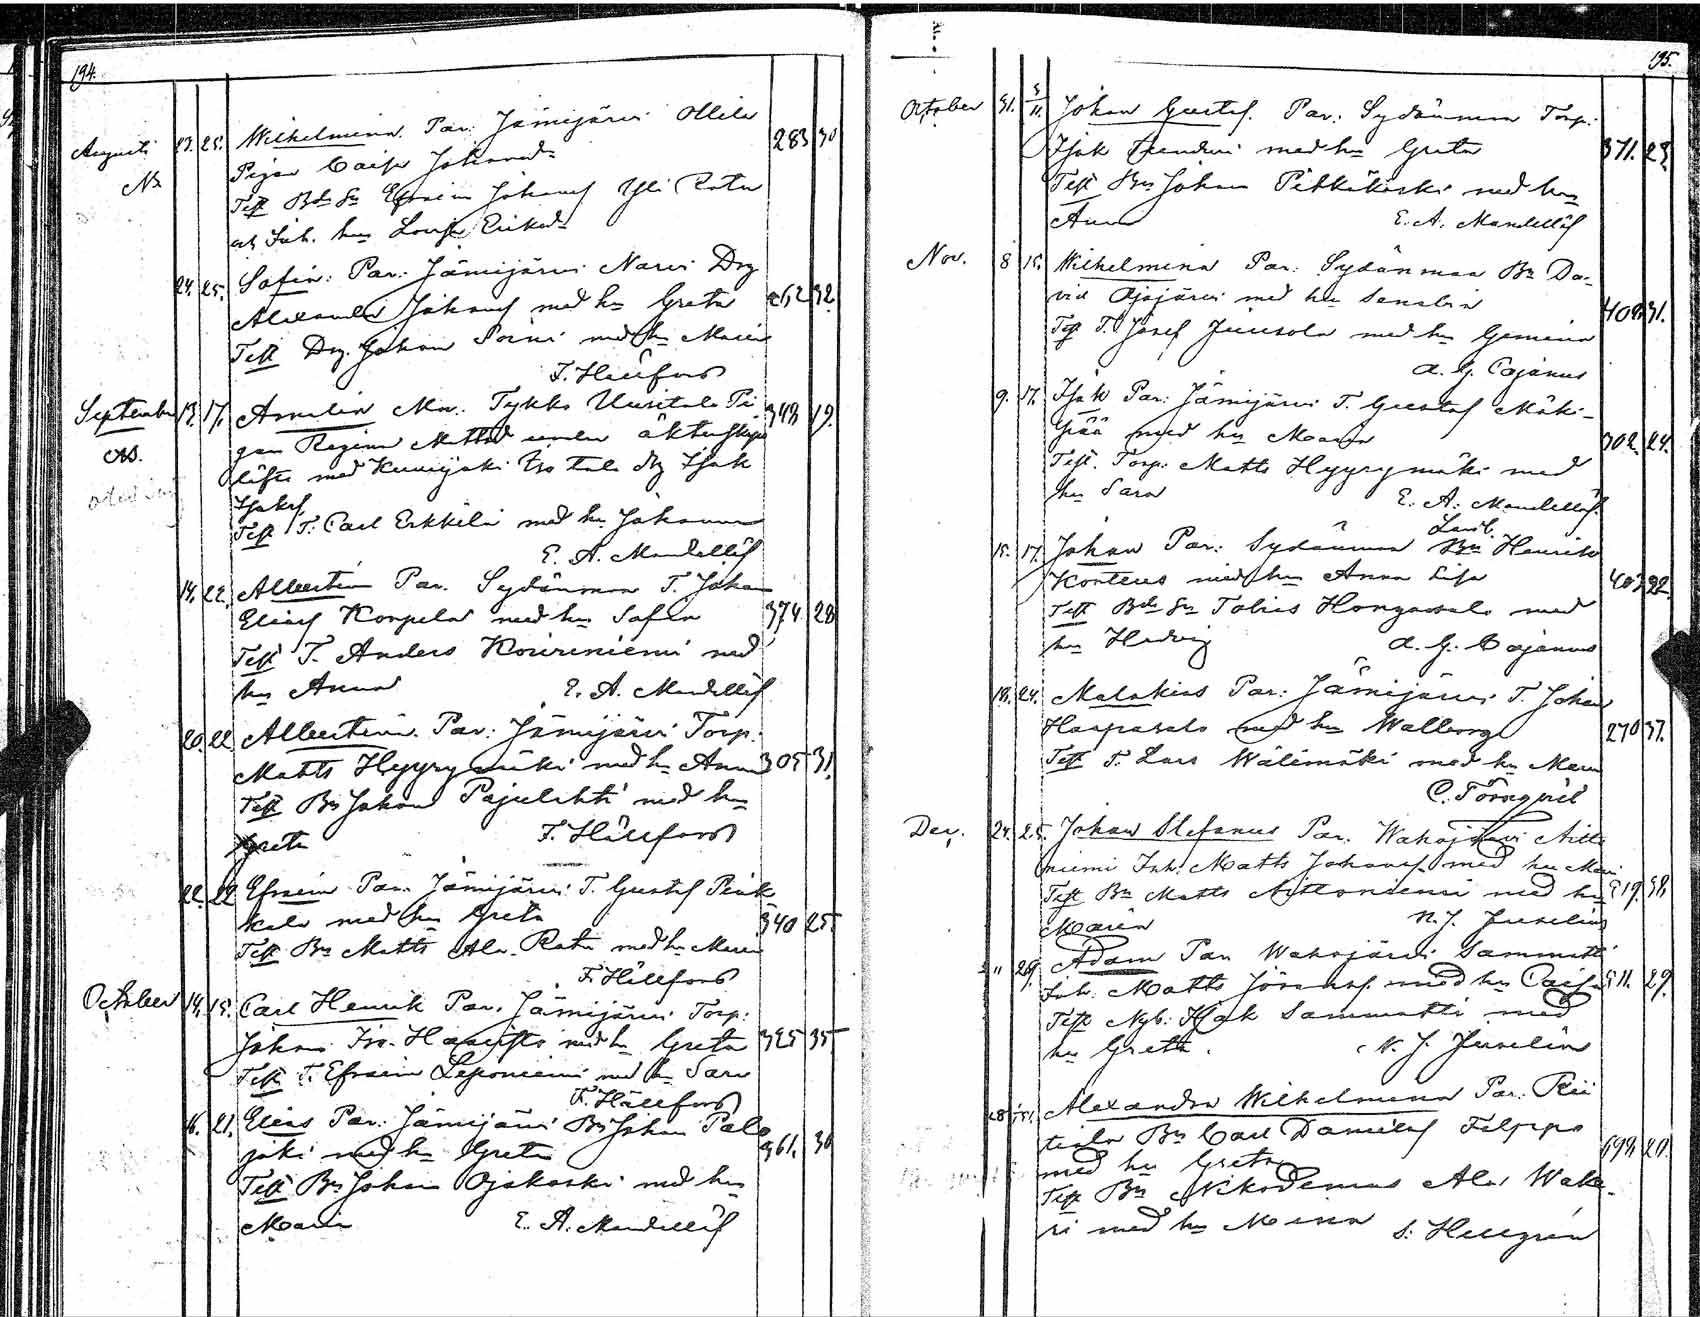 194.
Augusti 23. 25. Wilhelmina. Par: Jämijärvi Ollila
No Pigan Caisa Johansd. 283 30
Test Bd Sn Efraim Johansf Yli Rata
och Inh. hu Lovisa Eriksd.
24. 25. Sofia: Par: Jämijärvi Narvi Drg
Alexander Johansf med hu Greta 262 32.
Test Drg. Johan Soini med hu Maria
F. Hällfors
September 13. 17. Amalia Mn. Tykko Uusitalo Pi- 343 19.
gan Regina Mattsd under äktenskaps
löfte med Kuninjoki Iso talo drg Isak
Isaksf.
Test T. Carl Erkkilä med hu Johanna
E. A. Mandellöf
14. 22. Albertina Par. Sydänmaa T. Johan
Eliasf Korpela med hu Sofia 374 28
Test T. Anders Koivuniemi med
hu Anna E. A. Mandellöf
20. 22 Albertina. Par: Jämijärvi Torp.
Matts Hyyrymäki med hu Anna 305 31.
Test Bn Johan Pajulahti med hu
Greta F. Hällfors
22. 22 Efraim Par. Jämijärvi T. Gustaf Peik-
kala med hu Greta 340 25
Test Bn Matts Ala Rata med hu Maria
F. Hällfors
October 14. 15. Carl Henrik Par. Jämijärvi Torp:
Johan Iso-Harifto med hu Greta 325 35
Test T. Efraim Leponiemi med hu Sara
F. Hällfors
16. 21. Elias Par: Jämijärvi Bn Johan Palo
joki med hu Greta 361. 36
Test Bn Johan Ojakoski med hu
Maria E. A. Mandellöf
195.
October 31. 3/11. Johan Gustaf. Par: Sydänmaa Torp:
Isak med hu Greta 371. 23.
Test Bn Johan Pitkäkoski med hu
Anna E. A. Mandellöf
Nov. 8 15. Wilhelmina Par: Sydänmaa Bn Da-
vid Ojajärvi med hu Serafia 408. 31.
Test T. Josef Juusola med hu Gemina
A. G. Cajanus
9. 17. Isak Par: Jämijärvi T. Gustaf Mäki-
pää med hu Maria 302. 24.
Test. Torp: Matts Hyyrymäki med
hu Sara E. A. Mandellöf.
15. 17. Johan Par: Sydänmaa Bn Henrik
Konteus med hu Anna Lisa 403 22.
Test Bd Sn Tobias Hongassalo med
hu Hedvig A. G. Cajanus
18. 24. Malakias Par: Jämijärvi T. Johan
Haapasalo med hu Wallborg 270 37.
Test T. Lars Wälimäki med hu Maria
C. Törnqvist
Dec. 24. 25. Johan Stefanus Par. Wahojärvi Aitto
niemi Inh. Matts Johansf med hu Mari
Test Bn Matts Aittoniemi med hu 519. 38
Maria N. J. Juselius
" 29. Adam Par Wahojärvi Sammatti
Inh. Matts med hu Caisa 511. 29.
Test Nyb: Isak Sammatti med
hu Greta. N. J. Juselius
28 31. Alexandra Wilhelmina Par: Rii
tiala Bn Carl Danielsf Filppu
med hu Greta 698. 20.
Test Bn Nikodemus Ala Wahe-
ri med hu Mina S. Hellgren